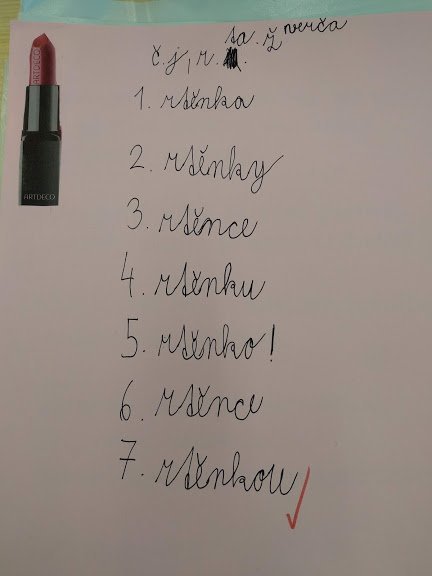 ta. ž verča
č. j, r.
ARTDECO
ARTDECO
1. rtěnka
2. rtěnky
3. rtěnce
4. rtěnku
5. rtěnko!
6. rtěnce
7. rtěnkou